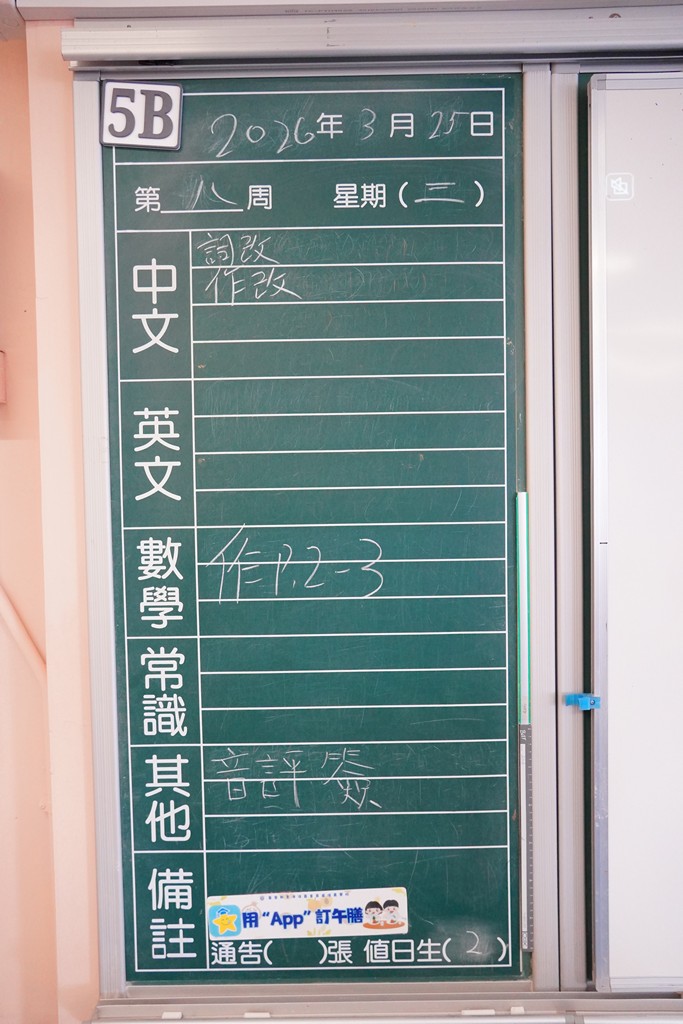 5B
2026年3月25日
第八周 星期(二)
中文
詞改
作改
英文
數學
作P.2-3
常識
其他
音評 簽
備註
用“App”訂午膳
通告( )張 值日生(2)